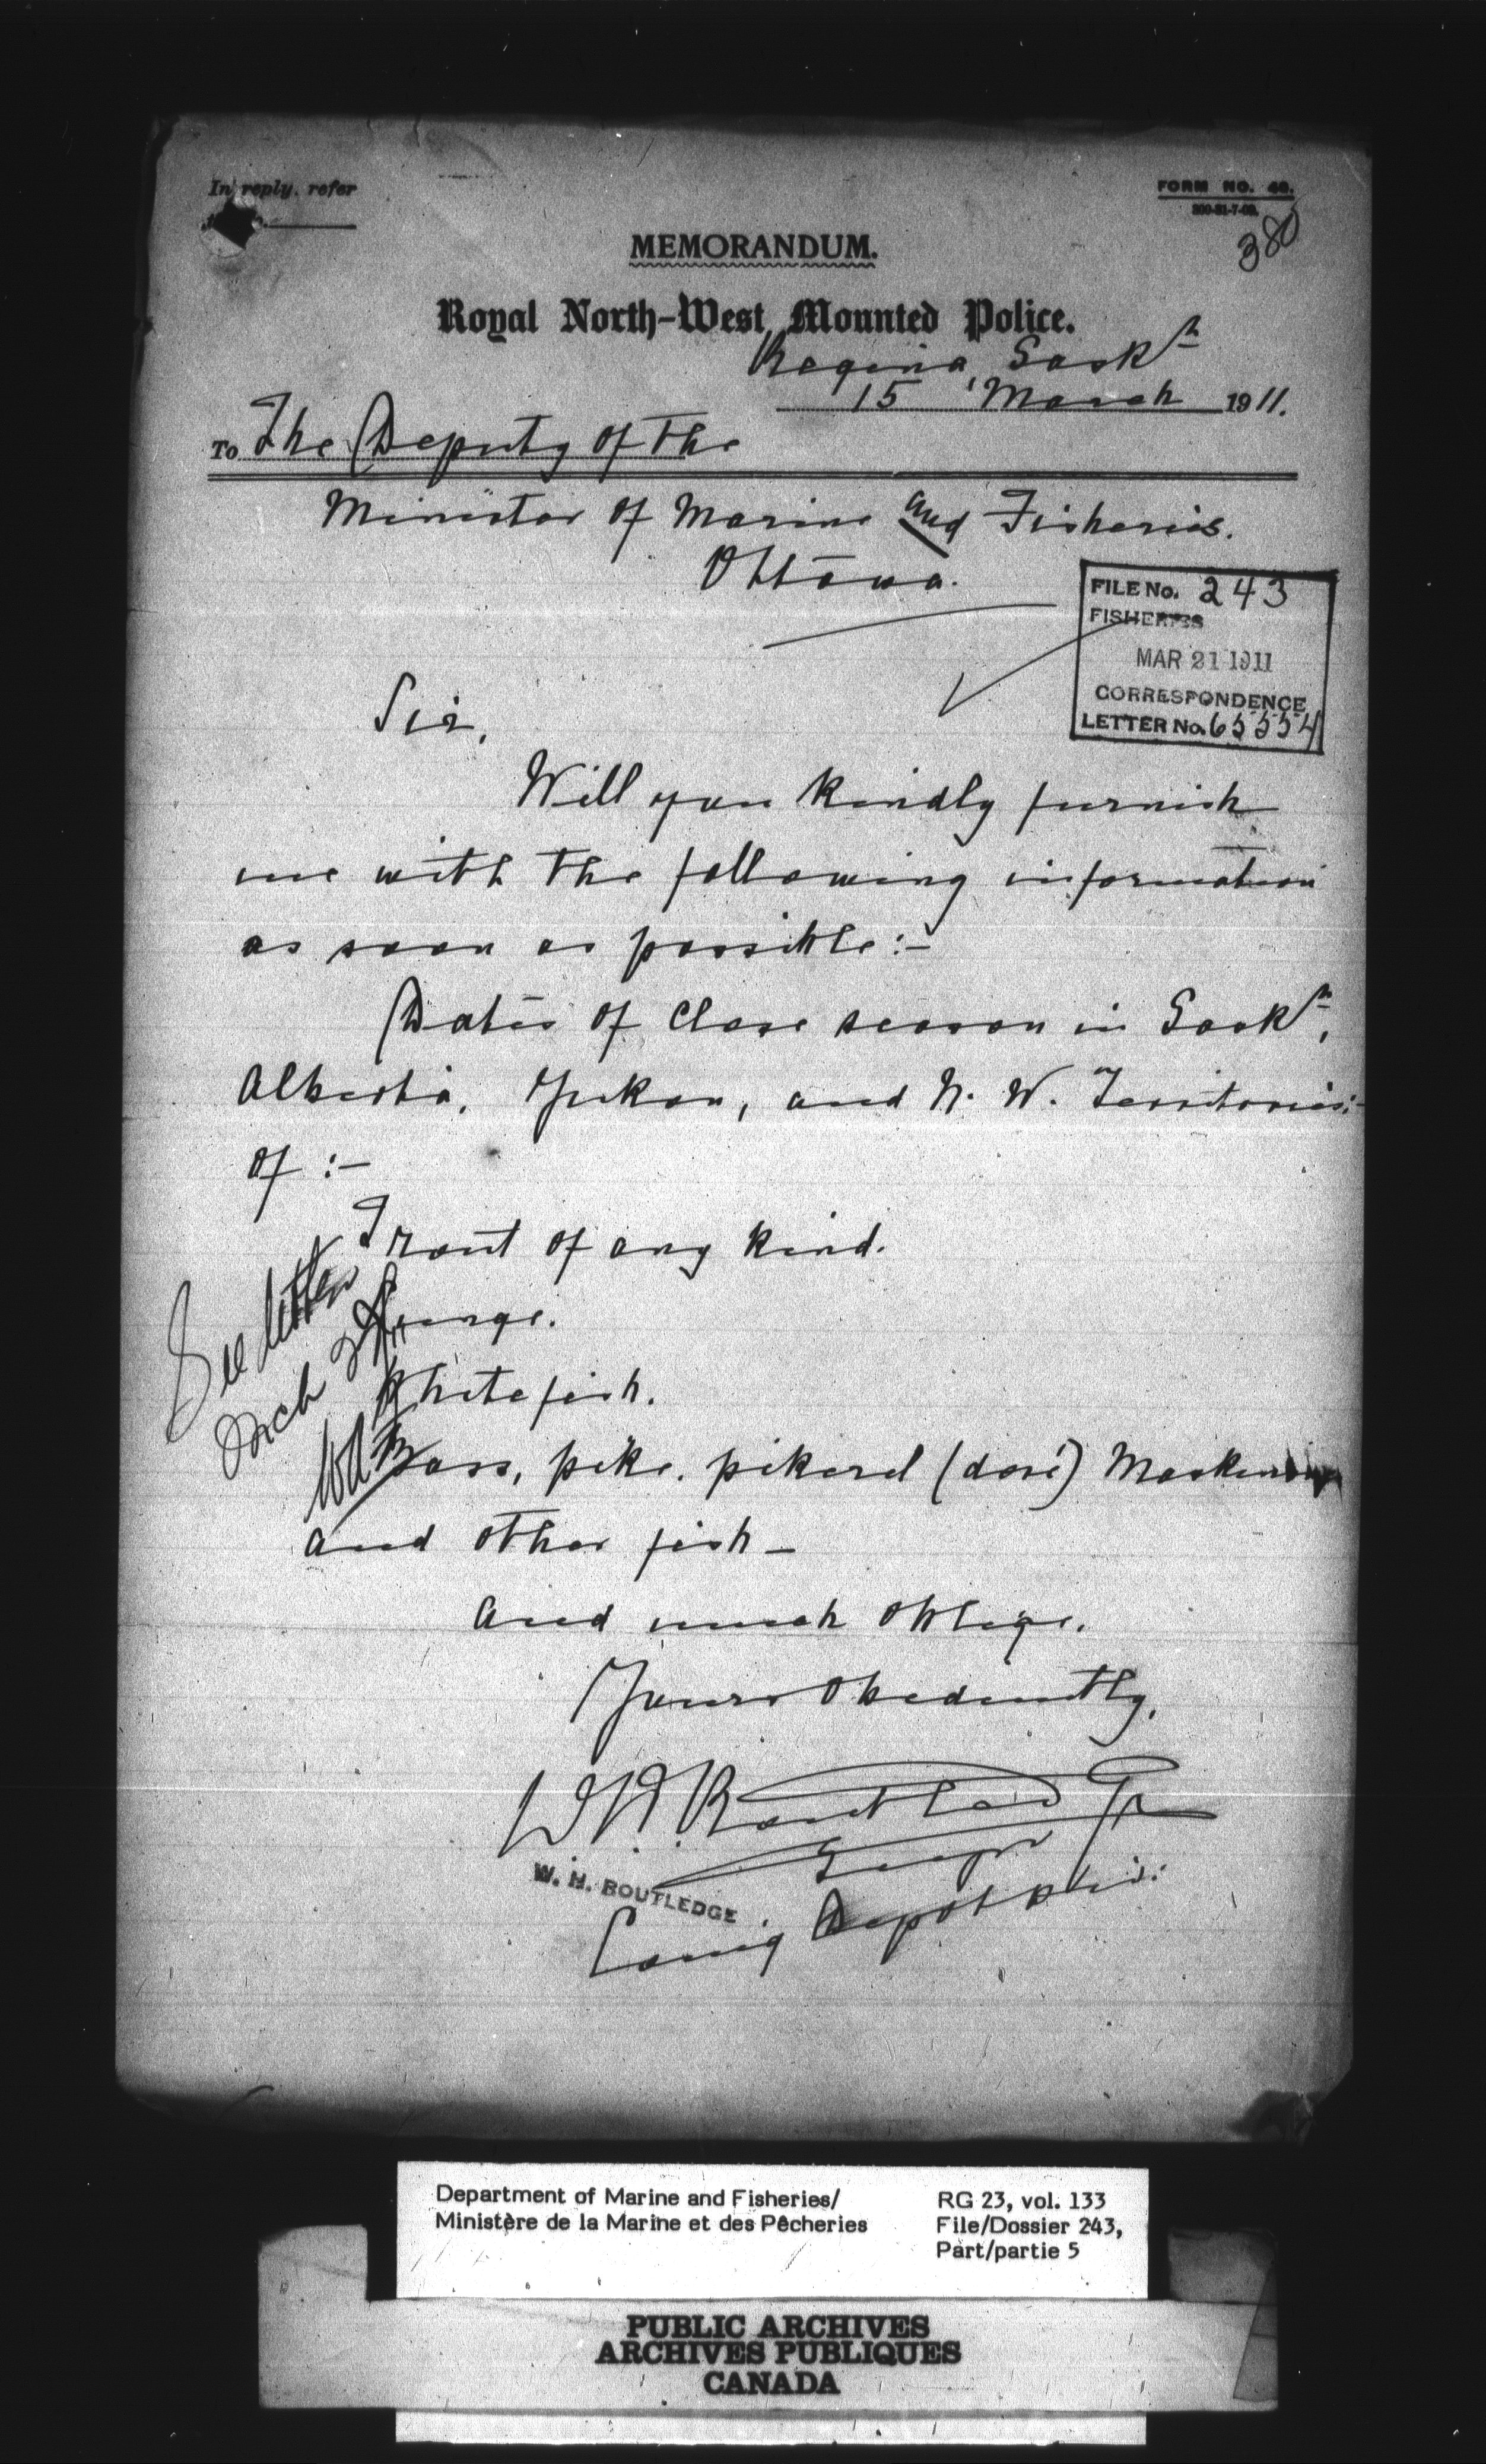 In reply, refer
FORM NO. 40.
380
MEMORANDUM.
Royal North-West Mounted Police.
Regina, Sask n
15 March 1911.
To The Deputy of the
Minister of Marine and Fisheries.
Ottawa.
FILE No. 243
FISHERIES
MAR 21 1911
CORRESPONDENCE
LETTER No. 65554
Sir,
Will you kindly furnish
me with the following information
as soon as possible:-
Dates of Close season in Sask n,
Alberta, Yukon, and N. W. Territories:-
of :-
Trout of any kind.
See letter
Mch
Whitefish.
Bass, pike, pikerel (doré)
and other fish -
and much oblige.
Yours Obediently,
W H Routledge
W. H. ROUTLEDGE
Comg Depot Div:
Department of Marine and Fisheries/
Ministère de la Marine et des Pêcheries
RG 23, vol. 133
File/Dossier 243,
Part/partie 5
PUBLIC ARCHIVES
ARCHIVES PUBLIQUES
CANADA